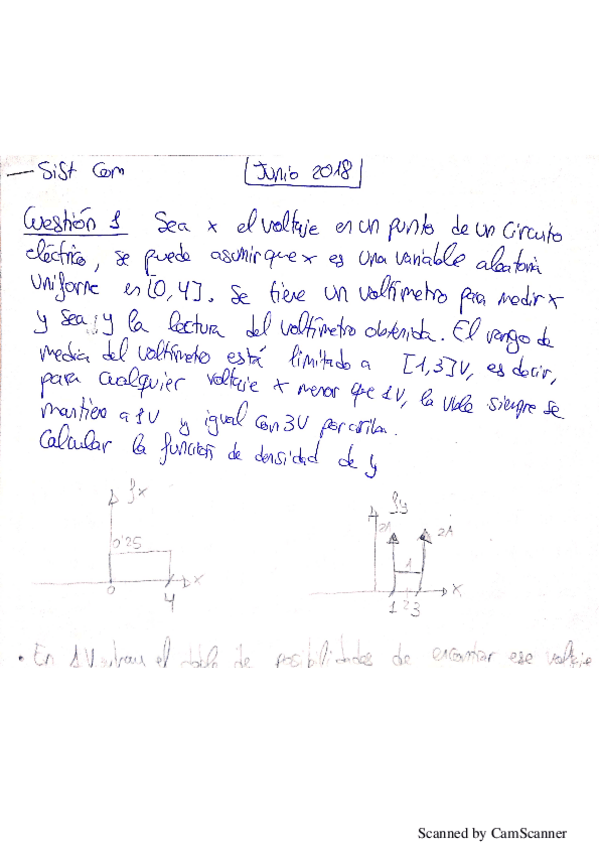 — Sist Com
Junio 2018
Cuestión 1 Sea x el voltaje en un punto de un circuito
eléctrico, se puede asumir que x es una variable aleatoria
uniforme en [0,4]. Se tiene un voltímetro para medir x
y sea y la lectura del voltímetro obtenida. El rango de
media del voltímetro está limitado a [1,3]V, es decir,
para cualquier voltaje x menor que 1V, la siempre se
mantiene a 1V y igual con 3V por arriba.
Calcular la función de densidad de y
fx
0'25
0
4
x
fy
2A
2A
1
1 2 3
x
• En 1V el doble de posibilidades de encontrar ese voltaje
Scanned by CamScanner